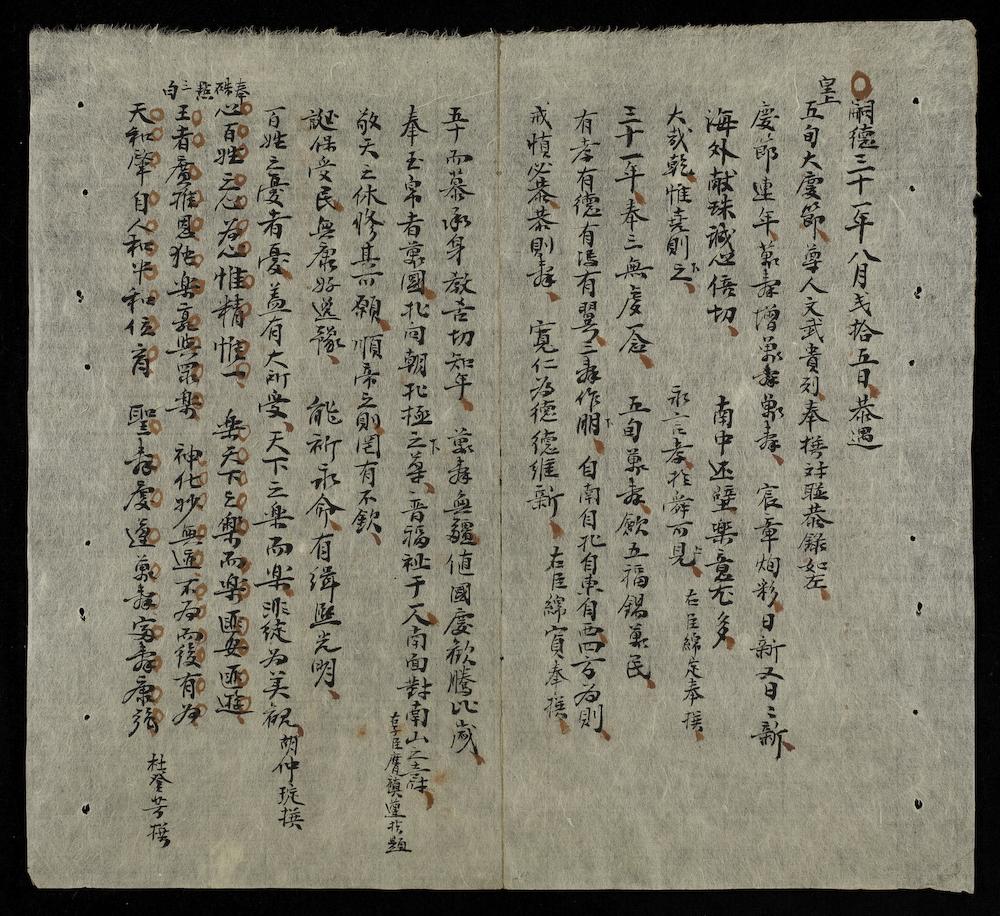 嗣德三十一年八月弍拾五日恭遇
皇上
五旬大慶節尊人文武貴列奉撰対聯恭錄如左
慶節連年萬壽增萬壽萬壽宸章炳彩日新又日〻新
海外献珠誠心倍切南中还璧樂意尤多
大哉乾惟堯則之永言孝於舜可見右臣綿定奉撰
三十一年奉三無虔一念五旬萬壽歛五福錫萬民
有孝有德有馮有翼三壽作朋自南自北自東自西四方為則
戒慎必恭恭則壽寬仁為德德維新右臣綿寊奉撰
五十而慕承身教吉切知年萬壽無疆值國慶歡騰比歲
奉玉帛者萬國北向朝北極之尊普福祉于天南面對南山之壽
右子臣膺禛蓮於題
敬天之休修其可願順帝之則罔有不欽
誕保受民無康好逸豫能祈永命有緝熙光明
百姓之憂者憂盖有大所受天下之樂而樂非徒為美観胡仲琁撰
奉硃㸃三白
心百姓之心為心惟精惟一樂天下之樂而樂匪安匪遊
王者廣推恩独楽孰與眾楽神化妙無迹不為而後有為
天和肇自人和中和位育聖壽慶逢萬壽富壽康強杜登芳撰